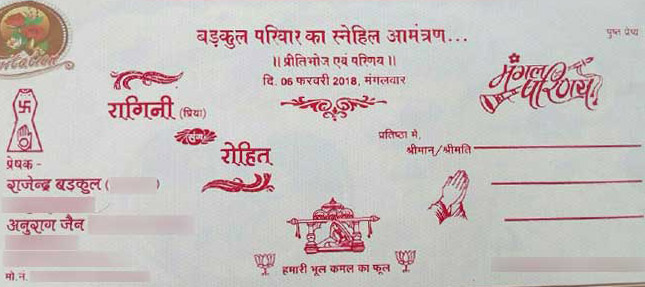 बड़कुल परिवार का स्नेहिल आमंत्रण...
पुष्प प्रेष्य
॥ प्रीतिभोज एवं परिणय ॥
दि. 06 फरवरी 2018, मंगलवार
मंगल परिणय
रागिनी (प्रिया)
संग
रोहित
प्रतिष्ठा में,
श्रीमान/श्रीमति
प्रेषक -
राजेन्द्र बड़कुल (
अनुराग जैन
मो.नं.
हमारी भूल कमल का फूल